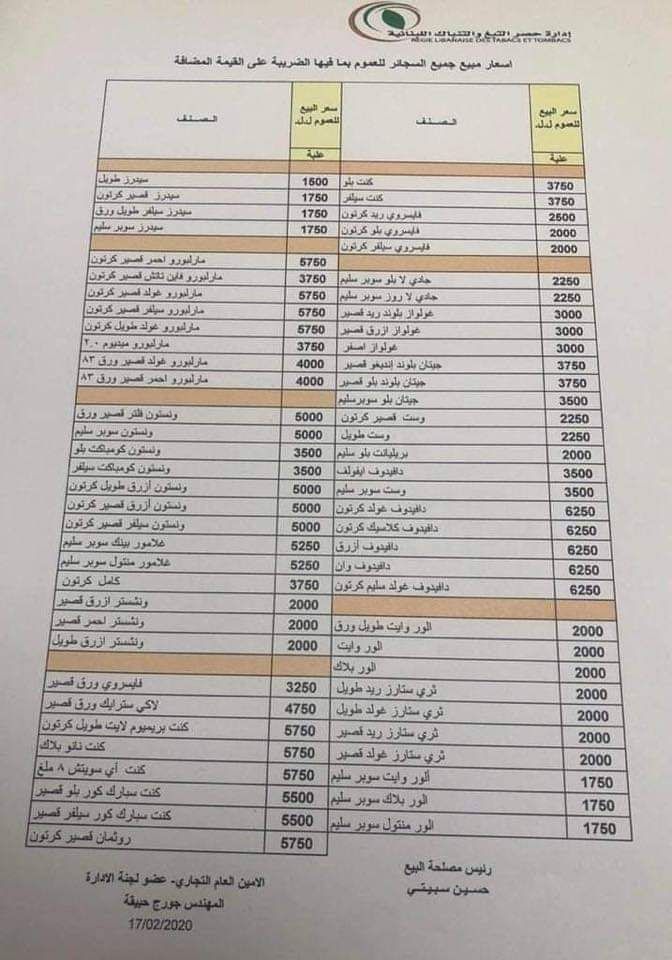 إدارة حصر التبغ والتنباك اللبنانية
REGIE LIBANAISE DES TABACS ET TOMBACS
اسعار مبيع جميع السجائر للعموم بما فيها الضريبة على القيمة المضافة
سعر البيع للعموم ل.ل. الـصـنـف
علبة
3750 كنت بلو
3750 كنت سيلفر
2500 فايسروي ريد كرتون
2000 فايسروي بلو كرتون
2000 فايسروي سيلفر كرتون
2250 جادي لا بلو سوبر سليم
2250 جادي لا روز سوبر سليم
3000 غولواز بلوند ريد قصير
3000 غولواز ازرق قصير
3000 غولواز اصفر
3750 جيتان بلوند إنديغو قصير
3750 جيتان بلوند بلو قصير
3500 جيتان بلو سوبرسليم
2250 وست قصير كرتون
2250 وست طويل
2000 بريليانت بلو سليم
3500 دافيدوف ايفولف
3500 وست سوبر سليم
6250 دافيدوف غولد كرتون
6250 دافيدوف كلاسيك كرتون
6250 دافيدوف أزرق
6250 دافيدوف وان
6250 دافيدوف غولد سليم كرتون
2000 الور وايت طويل ورق
2000 الور وايت
2000 الور بلاك
2000 ثري ستارز ريد طويل
2000 ثري ستارز غولد طويل
2000 ثري ستارز ريد قصير
2000 ثري ستارز غولد قصير
1750 ألور وايت سوبر سليم
1750 الور بلاك سوبر سليم
1750 الور منتول سوبر سليم
سعر البيع للعموم ل.ل. الـصـنـف
علبة
1500 سيدرز طويل
1750 سيدرز قصير كرتون
1750 سيدرز سيلفر طويل ورق
1750 سيدرز سوبر سليم
5750 مارلبورو احمر قصير كرتون
3750 مارلبورو فاين تاتش قصير كرتون
5750 مارلبورو غولد قصير كرتون
5750 مارلبورو سيلفر قصير كرتون
5750 مارلبورو غولد طويل كرتون
3750 مارلبورو ميديوم ٢.٠
4000 مارلبورو غولد قصير ورق ٨٣
4000 مارلبورو احمر قصير ورق ٨٣
5000 ونستون فلتر قصير ورق
5000 ونستون سوبر سليم
3500 ونستون كومباكت بلو
3500 ونستون كومباكت سيلفر
5000 ونستون أزرق طويل كرتون
5000 ونستون أزرق قصير كرتون
5000 ونستون سيلفر قصير كرتون
5250 غلامور بينك سوبر سليم
5250 غلامور منتول سوبر سليم
3750 كامل كرتون
2000 ونشستر ازرق قصير
2000 ونشستر احمر قصير
2000 ونشستر ازرق طويل
3250 فايسروي ورق قصير
4750 لاكي سترايك ورق قصير
5750 كنت بريميوم لايت طويل كرتون
5750 كنت نانو بلاك
5750 كنت أي سويتش ٨ ملغ
5500 كنت سبارك كور بلو قصير
5500 كنت سبارك كور سيلفر قصير
5750 روثمان قصير كرتون
رئيس مصلحة البيع
حسين سبيتي
الامين العام التجاري- عضو لجنة الادارة
المهندس جورج حبيقة
17/02/2020